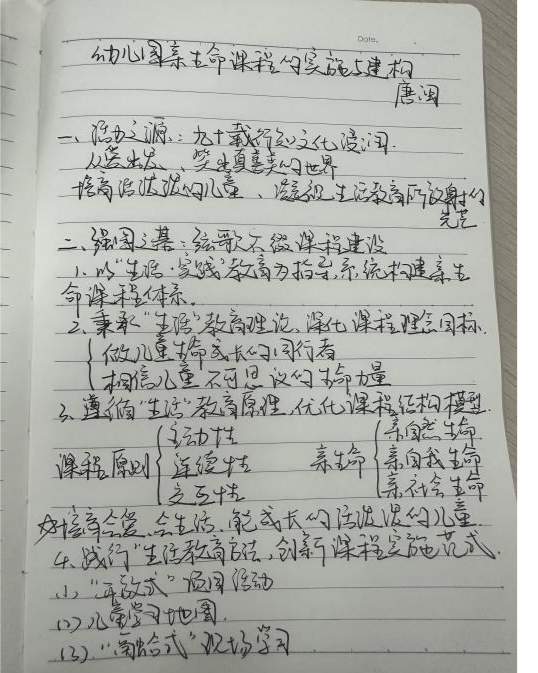 Date.
幼儿园亲生命课程的实施与建构
唐闺
一、活力之源：九十载行知文化浸润.
从爱出发、笑出真善美的世界
培育活泼泼的儿童、滋养说生活教育所放射的
光芒
二、强园之基：弦歌不辍课程建设
1.以"生活·实践"教育为指导,系统构建亲生
命课程体系.
2.秉承"生活"教育理论,深化课程理念目标.
做儿童生命成长的同行者
相信儿童不可思议的生命力量
3.遵循"生活"教育原理,优化课程结构模型.
课程原则 主动性 连续性 交互性 亲生命 亲自然生命 亲自我生命 亲社会生命
☆培育会爱、会生活、能成长的活泼泼的儿童.
4.践行"生活教育方法,创新课程实施范式.
(1)"开放式"项目活动
(2)儿童学习地图.
(3)"融合式"现场学习